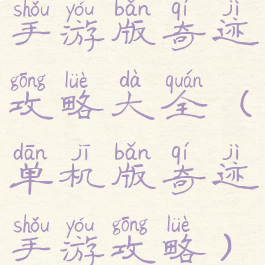 shǒu yóu bǎn qí jì
手游版奇迹
gōng lüè dà quán
攻略大全（
dān jī bǎn qí jì
单机版奇迹
shǒu yóu gōng lüè
手游攻略）